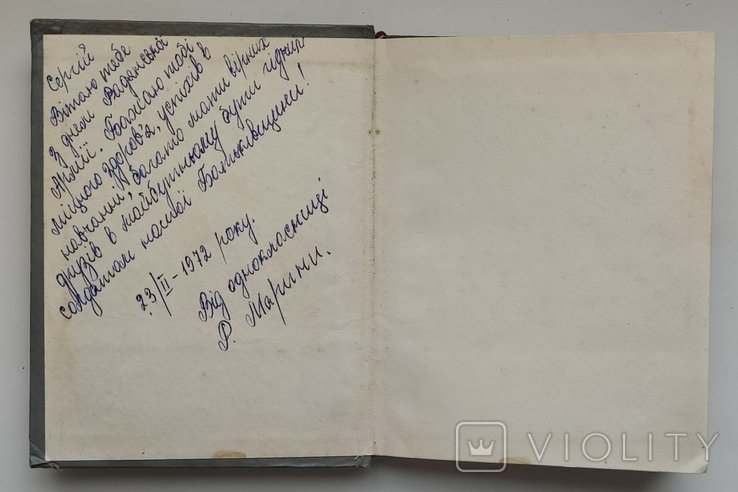 Сергій
Вітаю тебе
З днем Радянської
Армії. Бажаю тобі
міцного здоров'я, успіхів в
навчанні, багато мати вірних
друзів в майбутньому бути гідним
солдатом нашої Батьківщини!
23/II-1972 року.
Від однокласниці
Р. Марини.
VIOLITY